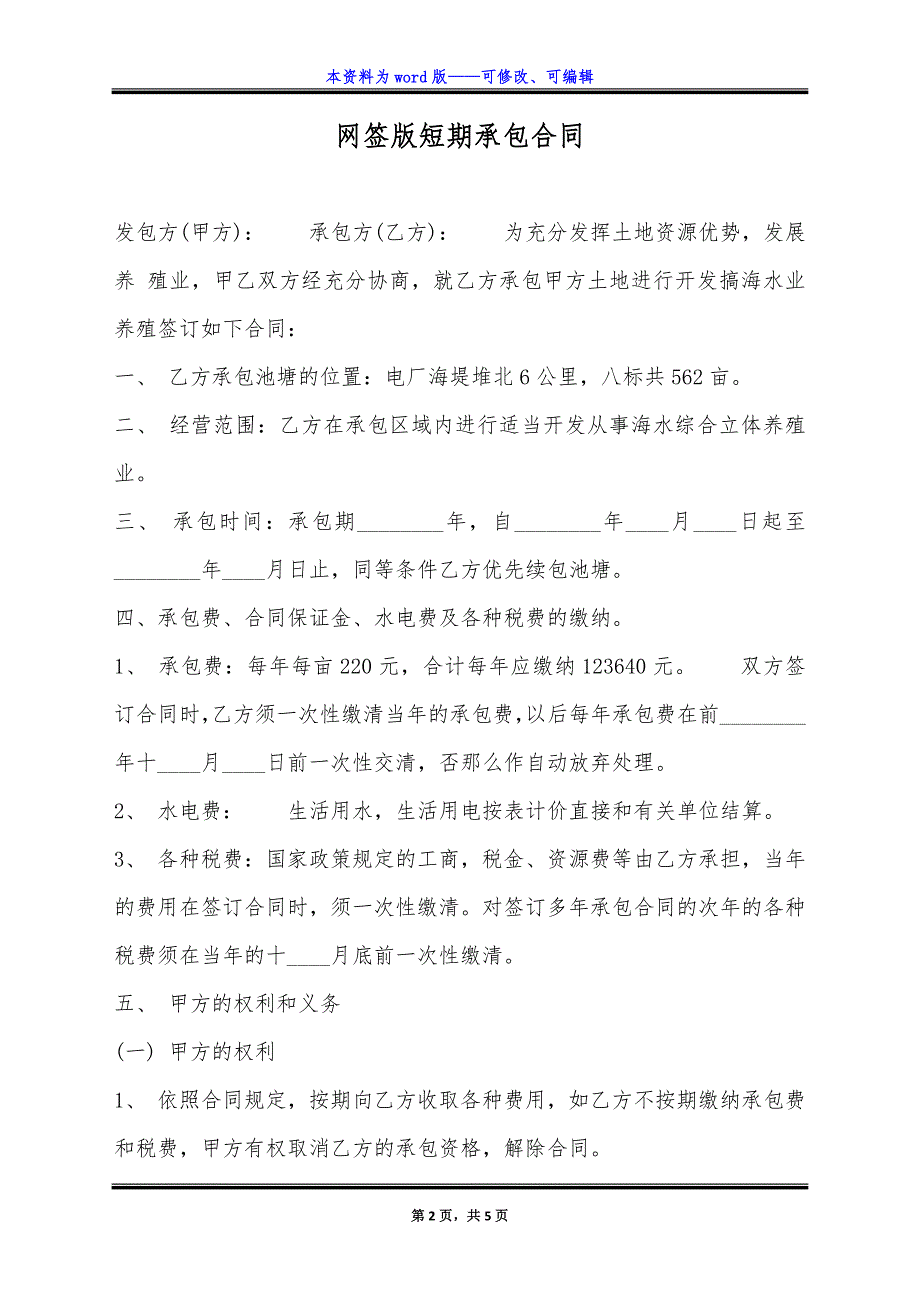 本资料为 word 版——可修改、可编辑
网签版短期承包合同
发包方(甲方)： 承包方(乙方)： 为充分发挥土地资源优势，发展
养 殖业，甲乙双方经充分协商，就乙方承包甲方土地进行开发搞海水业
养殖签订如下合同：
一、 乙方承包池塘的位置：电厂海堤堆北 6 公里，八标共 562 亩。
二、 经营范围：乙方在承包区域内进行适当开发从事海水综合立体养殖
业。
三、 承包时间：承包期________年，自________年____月____日起至
________年____月日止，同等条件乙方优先续包池塘。
四、承包费、合同保证金、水电费及各种税费的缴纳。
1、 承包费：每年每亩 220 元，合计每年应缴纳 123640 元。 双方签
订合同时，乙方须一次性缴清当年的承包费，以后每年承包费在前________
年十____月____日前一次性交清，否那么作自动放弃处理。
2、 水电费： 生活用水，生活用电按表计价直接和有关单位结算。
3、 各种税费：国家政策规定的工商，税金、资源费等由乙方承担，当年
的费用在签订合同时，须一次性缴清。对签订多年承包合同的次年的各种
税费须在当年的十____月底前一次性缴清。
五、 甲方的权利和义务
(一) 甲方的权利
1、 依照合同规定，按期向乙方收取各种费用，如乙方不按期缴纳承包费
和税费，甲方有权取消乙方的承包资格，解除合同。
第 2 页，共 5 页